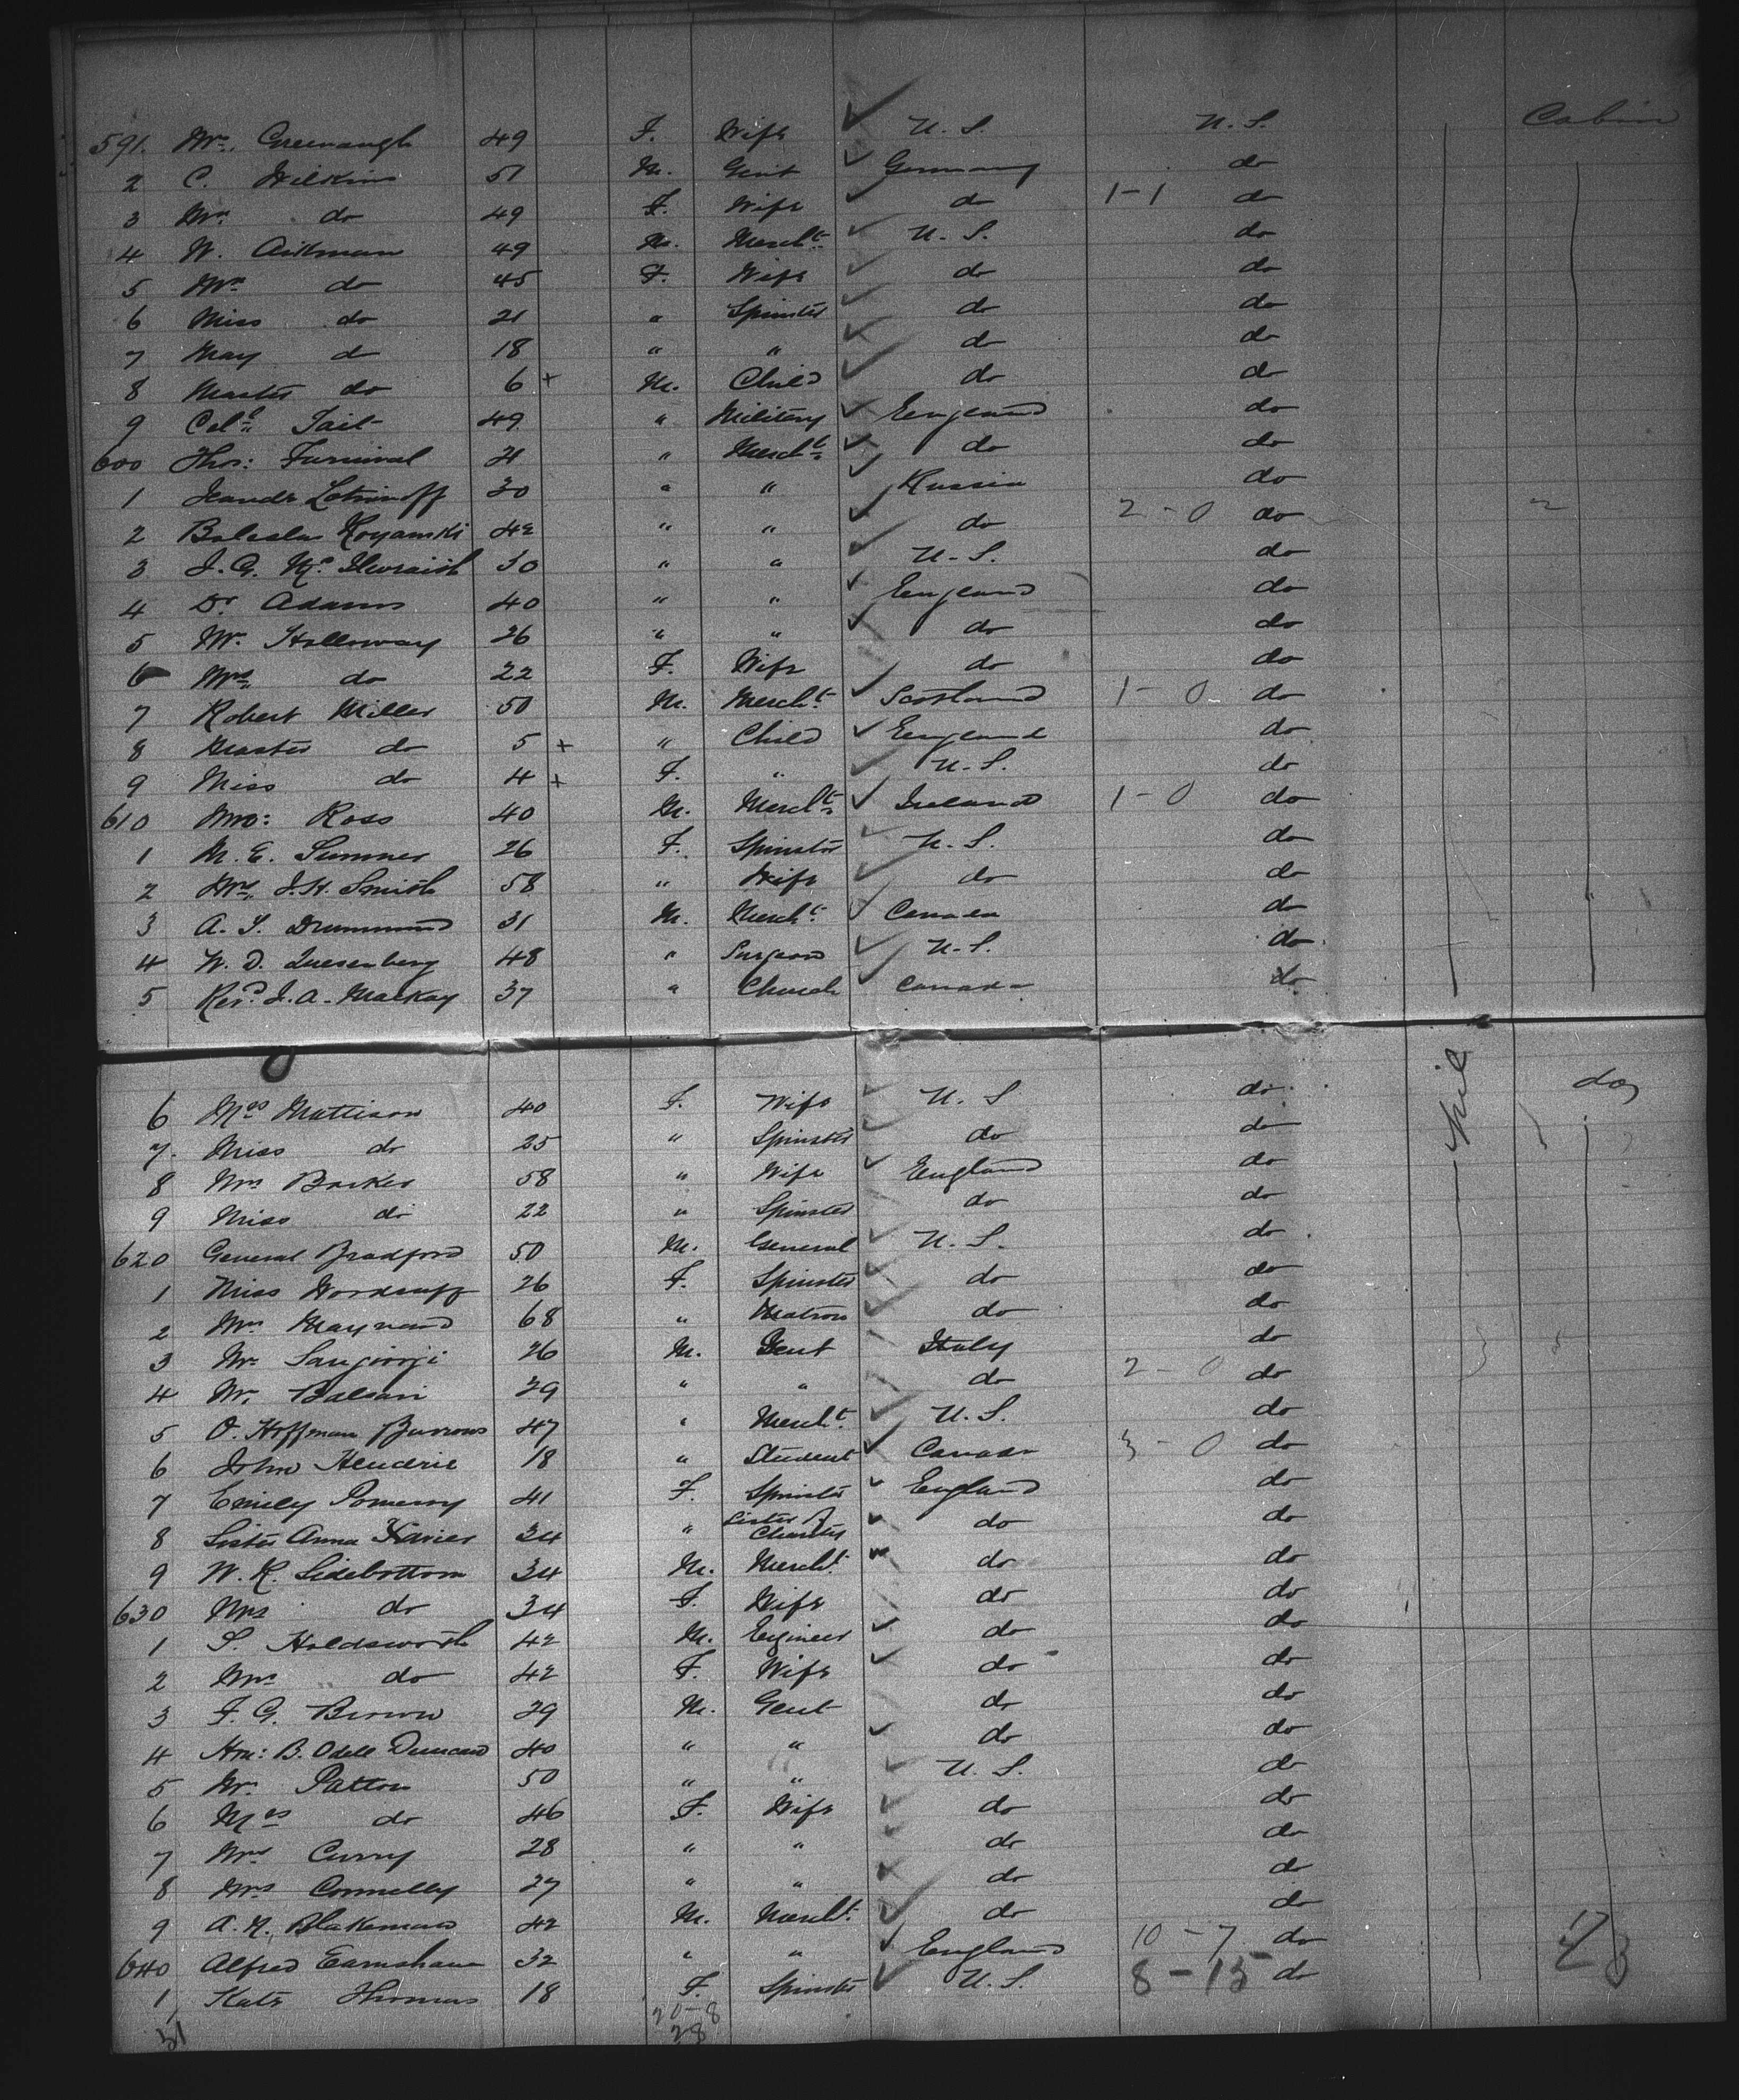 Cabin
591. Mrs. Greenough 49 F. Wife U.S. U.S.
2 C. Wilkins 51 M. Gent Germany do
3 Mrs do 49 F. Wife do 1-1 do
4 W. Aikman 49 M. Mercht U.S. do
5 Mrs do 45 F. Wife do do
6 Miss do 21 " Spinster do do
7 May do 18 " " do do
8 Master do 6 + M. Child do do
9 Coll Tait 49 " Military England do
600 Thos: Furnival 21 " Mercht do do
1 30 " " Russia do
2 42 " " do 2-0 do
3 J.G. Mc 30 " " U.S. do
4 Dr Adams 40 " " England do
5 Mr. Holloway 26 " " do do
6 Mrs do 22 F. Wife do do
7 Robert Miller 50 M. Mercht Scotland 1-0 do
8 Master do 5 + " Child England do
9 Miss do 4 + F. " U.S. do
610 Ross 40 M. Mercht Ireland 1-0 do
1 M.E. Sumner 26 F. Spinster U.S. do
2 Mrs J.H. Smith 58 " Wife do do
3 A. T. Drummond 31 M. Mercht Canada do
4 W.D. Quesenberg 48 " Surgeon U.S. do
5 Revd J.A. Mackay 37 " Church Canada do
6 Mrs Mattison 40 F. Wife U.S do nil do
7. Miss do 25 " Spinster do do
8 Mrs Barker 58 " Wife England do
9 Miss do 22 " Spinster do do
620 General Bradford 50 M. General U.S. do
1 Miss Woodruff 26 F. Spinster do do
2 Mrs Maynard 68 " Matron do do
3 Mr Sangiorgi 26 M. Gent Italy do
4 Mr. 29 " " do 2-0 do
5 O. Hoffman Burrows 47 " Mercht U.S. do
6 John Hendrie 18 " Student Canada 3-0 do
7 Emily Pomeroy 41 F. Spinster England do
8 Sister Anna Xavier 34 " Sister of Charity do do
9 W.K. Sidebottom 34 M. Mercht do do
630 Mrs do 34 F. Wife do do
1 S. Holdsworth 42 M. Engineer do do
2 Mrs do 42 F. Wife do do
3 F.G. Brown 29 M. Gent do do
4 Hon: B. Odell Duncan 40 " " do do
5 Mr. Patton 50 " " U.S. do
6 Mrs do 46 F. Wife do do
7 Mrs Curry 28 " " do do
8 Mrs Connelly 27 " " do do
9 A.N. Blakeman 42 M. Mercht do do
640 Alfred Earnshaw 32 " " England 10-7 do
1 Kate Thomas 18 F. Spinster U.S. 8-15 do
51 20-8
28